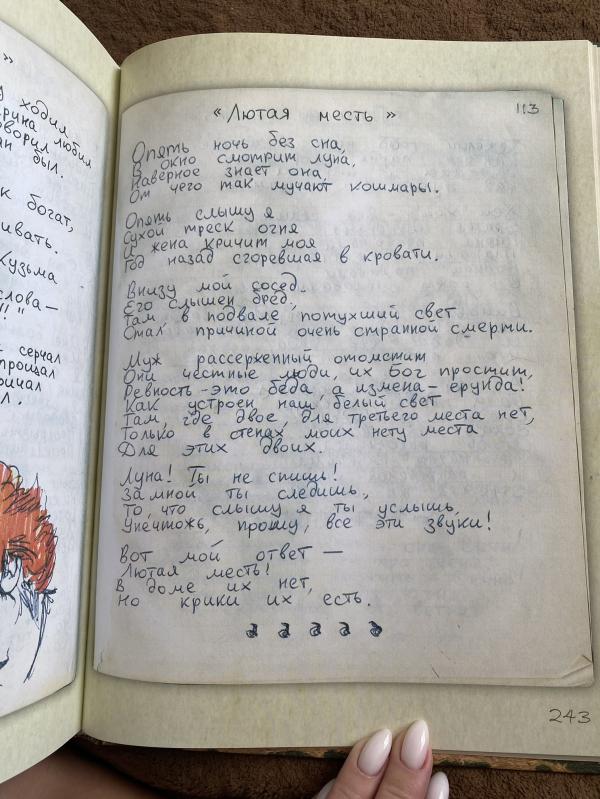 »
ходил
любил
оворил
ан был.
к богат,
ивать.
Кузьма
слова—
!!"
серчал
прощал
ричал
л.
113
« Лютая месть »
Опять ночь без сна,
В окно смотрит луна,
Наверное знает она,
От чего так мучают кошмары.
Опять слышу я
Сухой треск огня
И жена кричит моя
Год назад сгоревшая в кровати.
Внизу мой сосед.
Его слышен бред,
Там, в подвале потухший свет
Стал причиной очень странной смерти.
Муж рассерженный отомстит
Они честные люди, их Бог простит,
Ревность-это беда, а измена-ерунда!
Как устроен наш белый свет
Там, где двое, для третьего места нет,
Только в стенах моих нету места
Для этих двоих.
Луна! Ты не спишь!
За мной ты следишь,
То, что слышу я ты услышь,
Уничтожь, прошу, все эти звуки!
Вот мой ответ —
Лютая месть!
В доме их нет,
Но крики их есть.
243